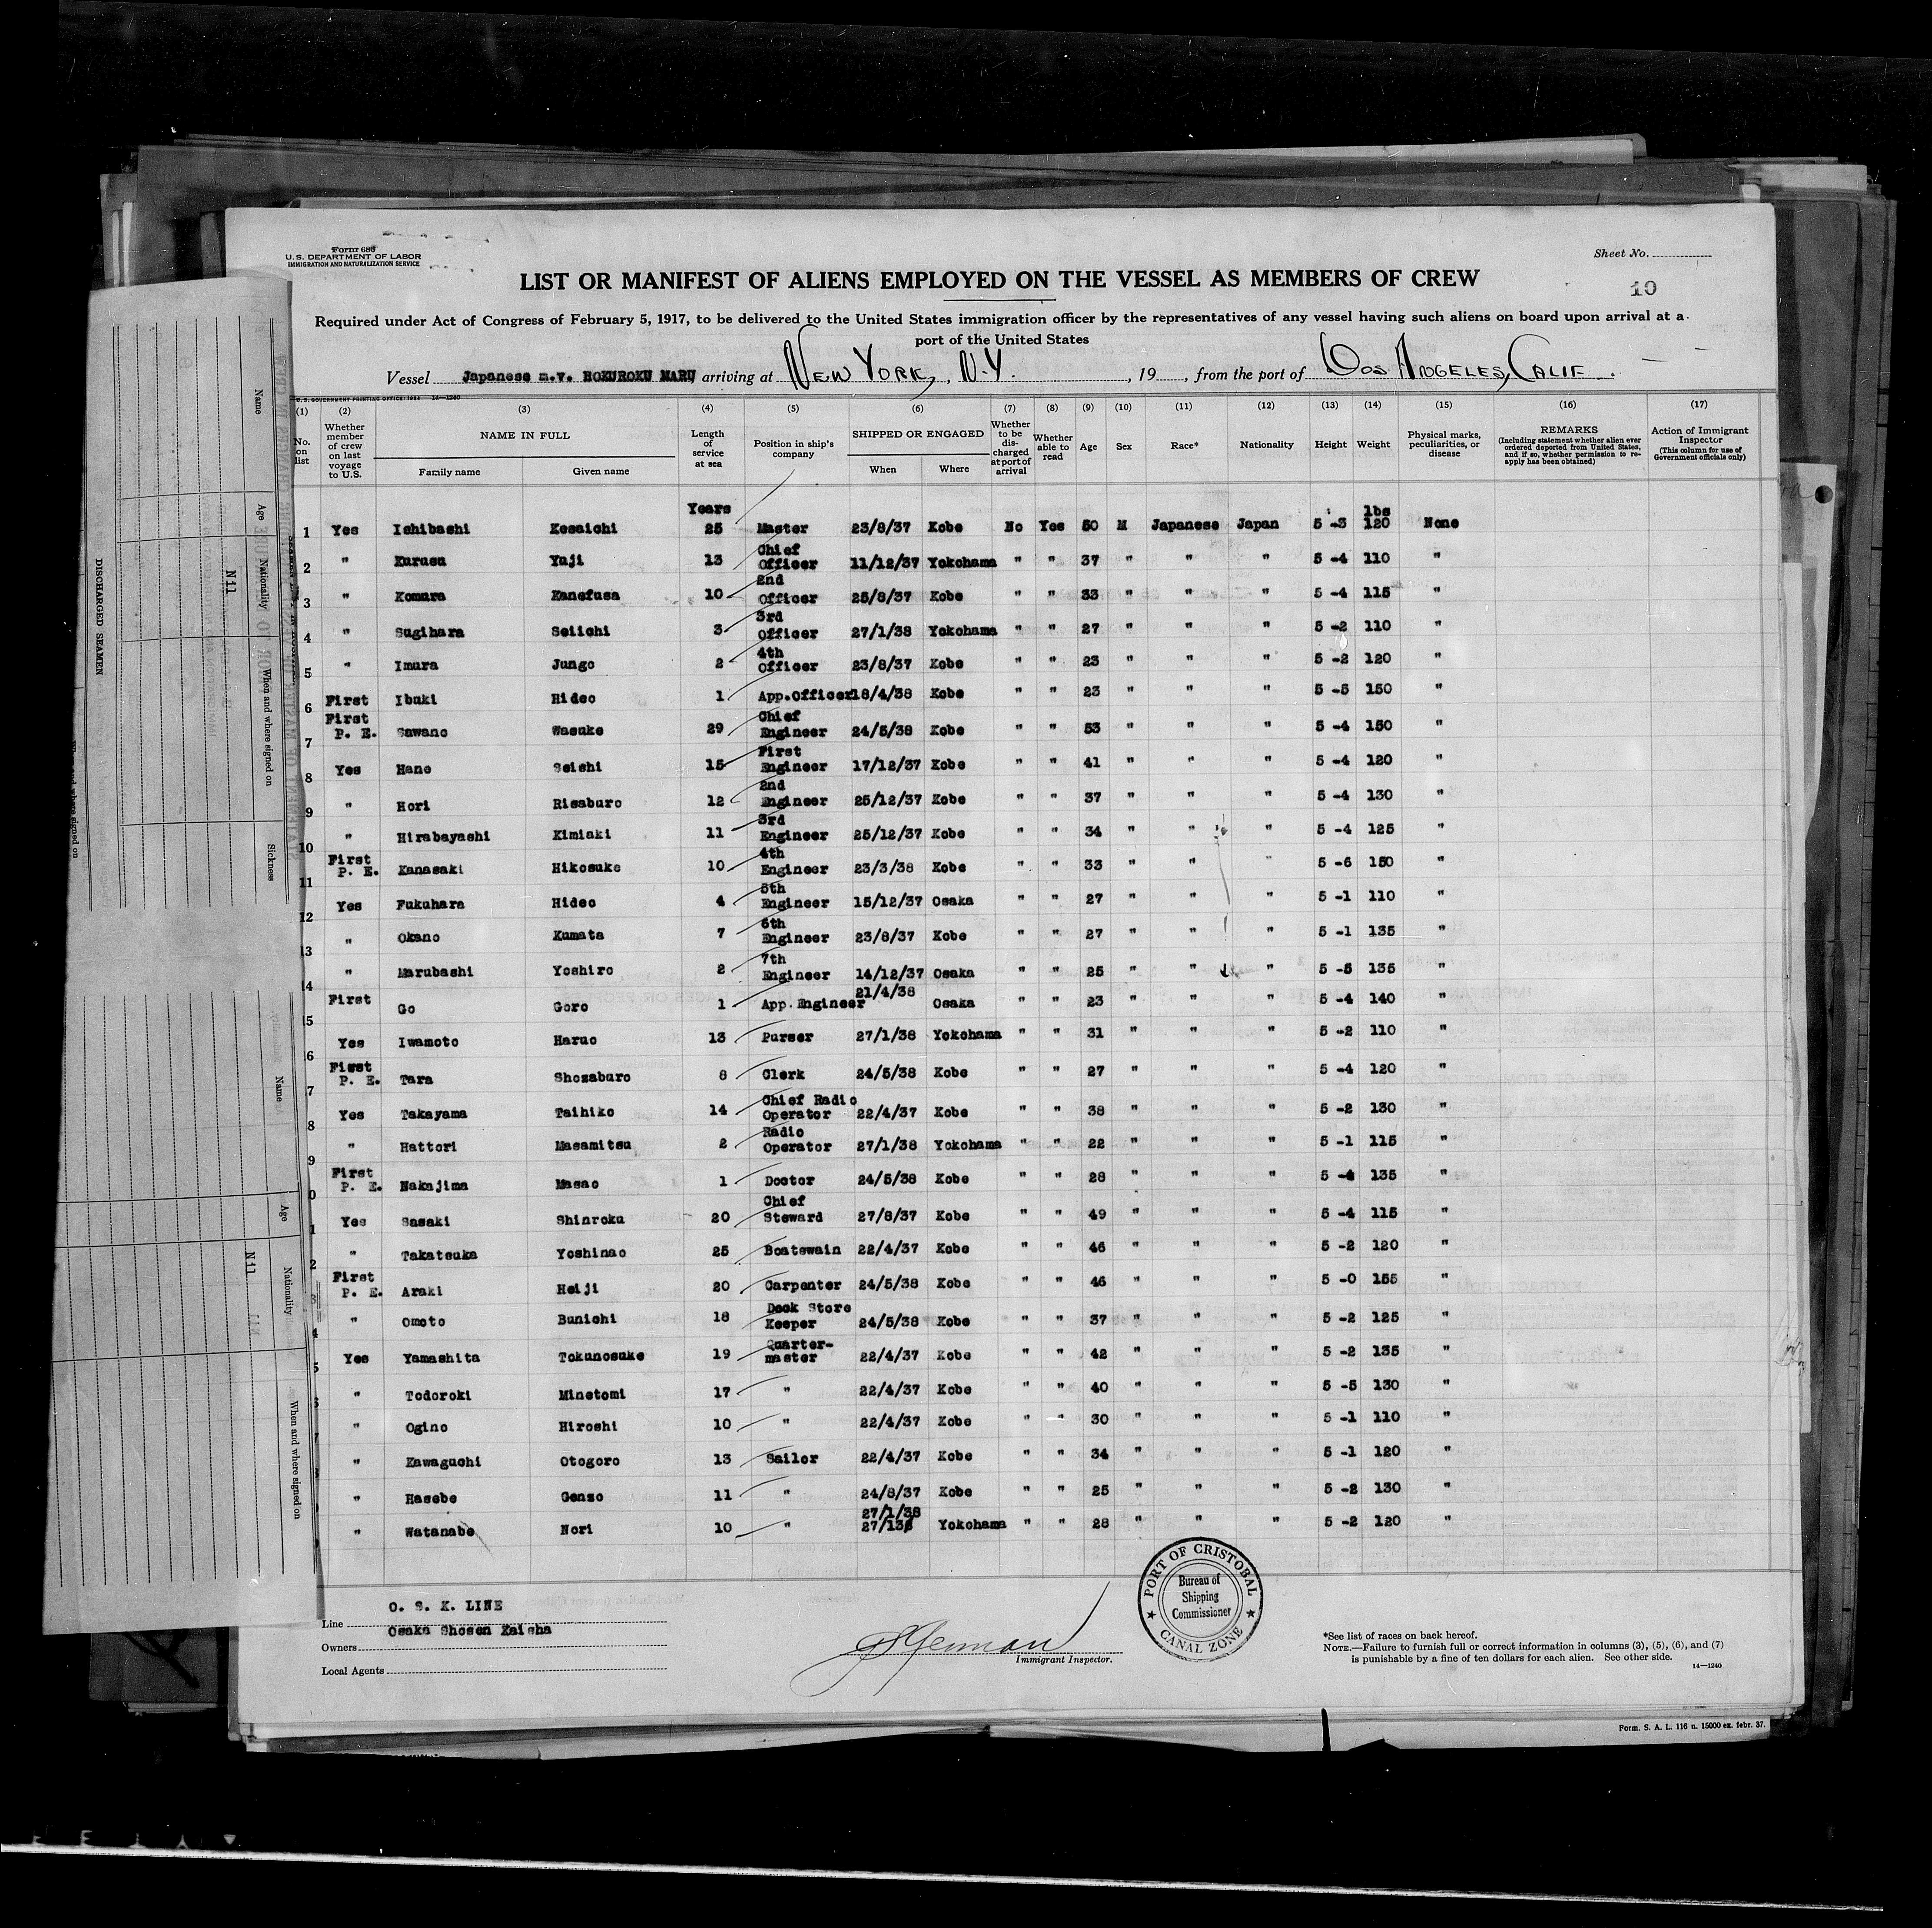 Form 680
U. S. DEPARTMENT OF LABOR
IMMIGRATION AND NATURALIZATION SERVICE
Sheet No.
LIST OR MANIFEST OF ALIENS EMPLOYED ON THE VESSEL AS MEMBERS OF CREW
10
Required under Act of Congress of February 5, 1917, to be delivered to the United States immigration officer by the representatives of any vessel having such aliens on board upon arrival at a
port of the United States
Vessel Japanese m.v. HOKUROKU MARU arriving at NEW YORK, N.Y. , 19 , from the port of LOS ANGELES, CALIF.
U. S. GOVERNMENT PRINTING OFFICE: 1934 14—1240
(1) (2) (3) (4) (5) (6) (7) (8) (9) (10) (11) (12) (13) (14) (15) (16) (17)
No. on list
Whether member of crew on last voyage to U.S.
NAME IN FULL
Family name Given name
Length of service at sea
Position in ship's company
SHIPPED OR ENGAGED
When Where
Whether to be discharged at port of arrival
Whether able to read
Age
Sex
Race*
Nationality
Height
Weight
Physical marks, peculiarities, or disease
REMARKS
(Including statement whether alien ever ordered deported from United States, and if so, whether permission to reapply has been obtained)
Action of Immigrant Inspector
(This column for use of Government officials only)
Years lbs
1 Yes Ishibashi Kesaichi 25 Master 23/8/37 Kobe No Yes 50 M Japanese Japan 5 -3 120 None
2 " Kurusu Yuji 13 Chief Officer 11/12/37 Yokohama " " 37 " " " 5 -4 110 "
3 " Komura Kanefusa 10 2nd Officer 25/8/37 Kobe " " 33 " " " 5 -4 115 "
4 " Sugihara Seiichi 3 3rd Officer 27/1/38 Yokohama " " 27 " " " 5 -2 110 "
5 " Imura Jungo 2 4th Officer 23/8/37 Kobe " " 23 " " " 5 -2 120 "
6 First Ibuki Hideo 1 App.Officer 18/4/38 Kobe " " 23 " " " 5 -5 150 "
7 First P. E. Sawano Wasuke 29 Chief Engineer 24/5/38 Kobe " " 53 " " " 5 -4 150 "
8 Yes Hano Seishi 15 First Engineer 17/12/37 Kobe " " 41 " " " 5 -4 120 "
9 " Hori Risaburo 12 2nd Engineer 25/12/37 Kobe " " 37 " " " 5 -4 130 "
10 " Hirabayashi Kimiaki 11 3rd Engineer 25/12/37 Kobe " " 34 " " " 5 -4 125 "
11 First P. E. Kanasaki Hikosuke 10 4th Engineer 23/3/38 Kobe " " 33 " " " 5 -6 150 "
12 Yes Fukuhara Hideo 4 5th Engineer 15/12/37 Osaka " " 27 " " " 5 -1 110 "
13 " Okano Kumata 7 6th Engineer 23/8/37 Kobe " " 27 " " " 5 -1 135 "
4 " Marubashi Yoshiro 2 7th Engineer 14/12/37 Osaka " " 25 " " " 5 -5 135 "
5 First Go Goro 1 App. Engineer 21/4/38 Osaka " " 23 " " " 5 -4 140 "
6 Yes Iwamoto Haruo 13 Purser 27/1/38 Yokohama " " 31 " " " 5 -2 110 "
7 First P. E. Tara Shozaburo 8 Clerk 24/5/38 Kobe " " 27 " " " 5 -4 120 "
8 Yes Takayama Taihiko 14 Chief Radio Operator 22/4/37 Kobe " " 38 " " " 5 -2 130 "
9 " Hattori Masamitsu 2 Radio Operator 27/1/38 Yokohama " " 22 " " " 5 -1 115 "
0 First P. E. Nakajima Masao 1 Doctor 24/5/38 Kobe " " 28 " " " 5 -4 135 "
1 Yes Sasaki Shinroku 20 Chief Steward 27/8/37 Kobe " " 49 " " " 5 -4 115 "
2 " Takatsuka Yoshinao 25 Boatswain 22/4/37 Kobe " " 46 " " " 5 -2 120 "
3 First P. E. Araki Heiji 20 Carpenter 24/5/38 Kobe " " 46 " " " 5 -0 155 "
4 " Omoto Bunichi 18 Deck Store Keeper 24/5/38 Kobe " " 37 " " " 5 -2 125 "
5 Yes Yamashita Tokunosuke 19 Quarter-master 22/4/37 Kobe " " 42 " " " 5 -2 135 "
" Todoroki Minetomi 17 " 22/4/37 Kobe " " 40 " " " 5 -5 130 "
" Ogino Hiroshi 10 " 22/4/37 Kobe " " 30 " " " 5 -1 110 "
" Kawaguchi Otogoro 13 Sailor 22/4/37 Kobe " " 34 " " " 5 -1 120 "
" Hasebe Genzo 11 " 24/8/37 Kobe " " 25 " " " 5 -2 130 "
" Watanabe Nori 10 " 27/1/38 27/138 Yokohama " " 28 " " " 5 -2 120 "
Line O. S. K. LINE
Owners Osaka Shosen Kaisha
Local Agents
Immigrant Inspector.
PORT OF CRISTOBAL
Bureau of
Shipping
Commissioner
CANAL ZONE
*See list of races on back hereof.
NOTE.—Failure to furnish full or correct information in columns (3), (5), (6), and (7)
is punishable by a fine of ten dollars for each alien. See other side.
14—1240
Form. S. A. L. 116 n. 15000 ex. febr. 37.
DISCHARGED SEAMEN
Name
Age
Nationality
When and where signed on
Sickness
Nil
Name
Age
Nationality
When and where signed on
Nil